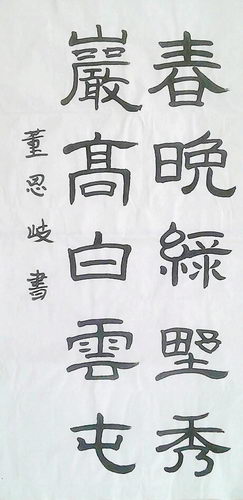 春晚綠野秀
巖高白雲屯
董思岐書